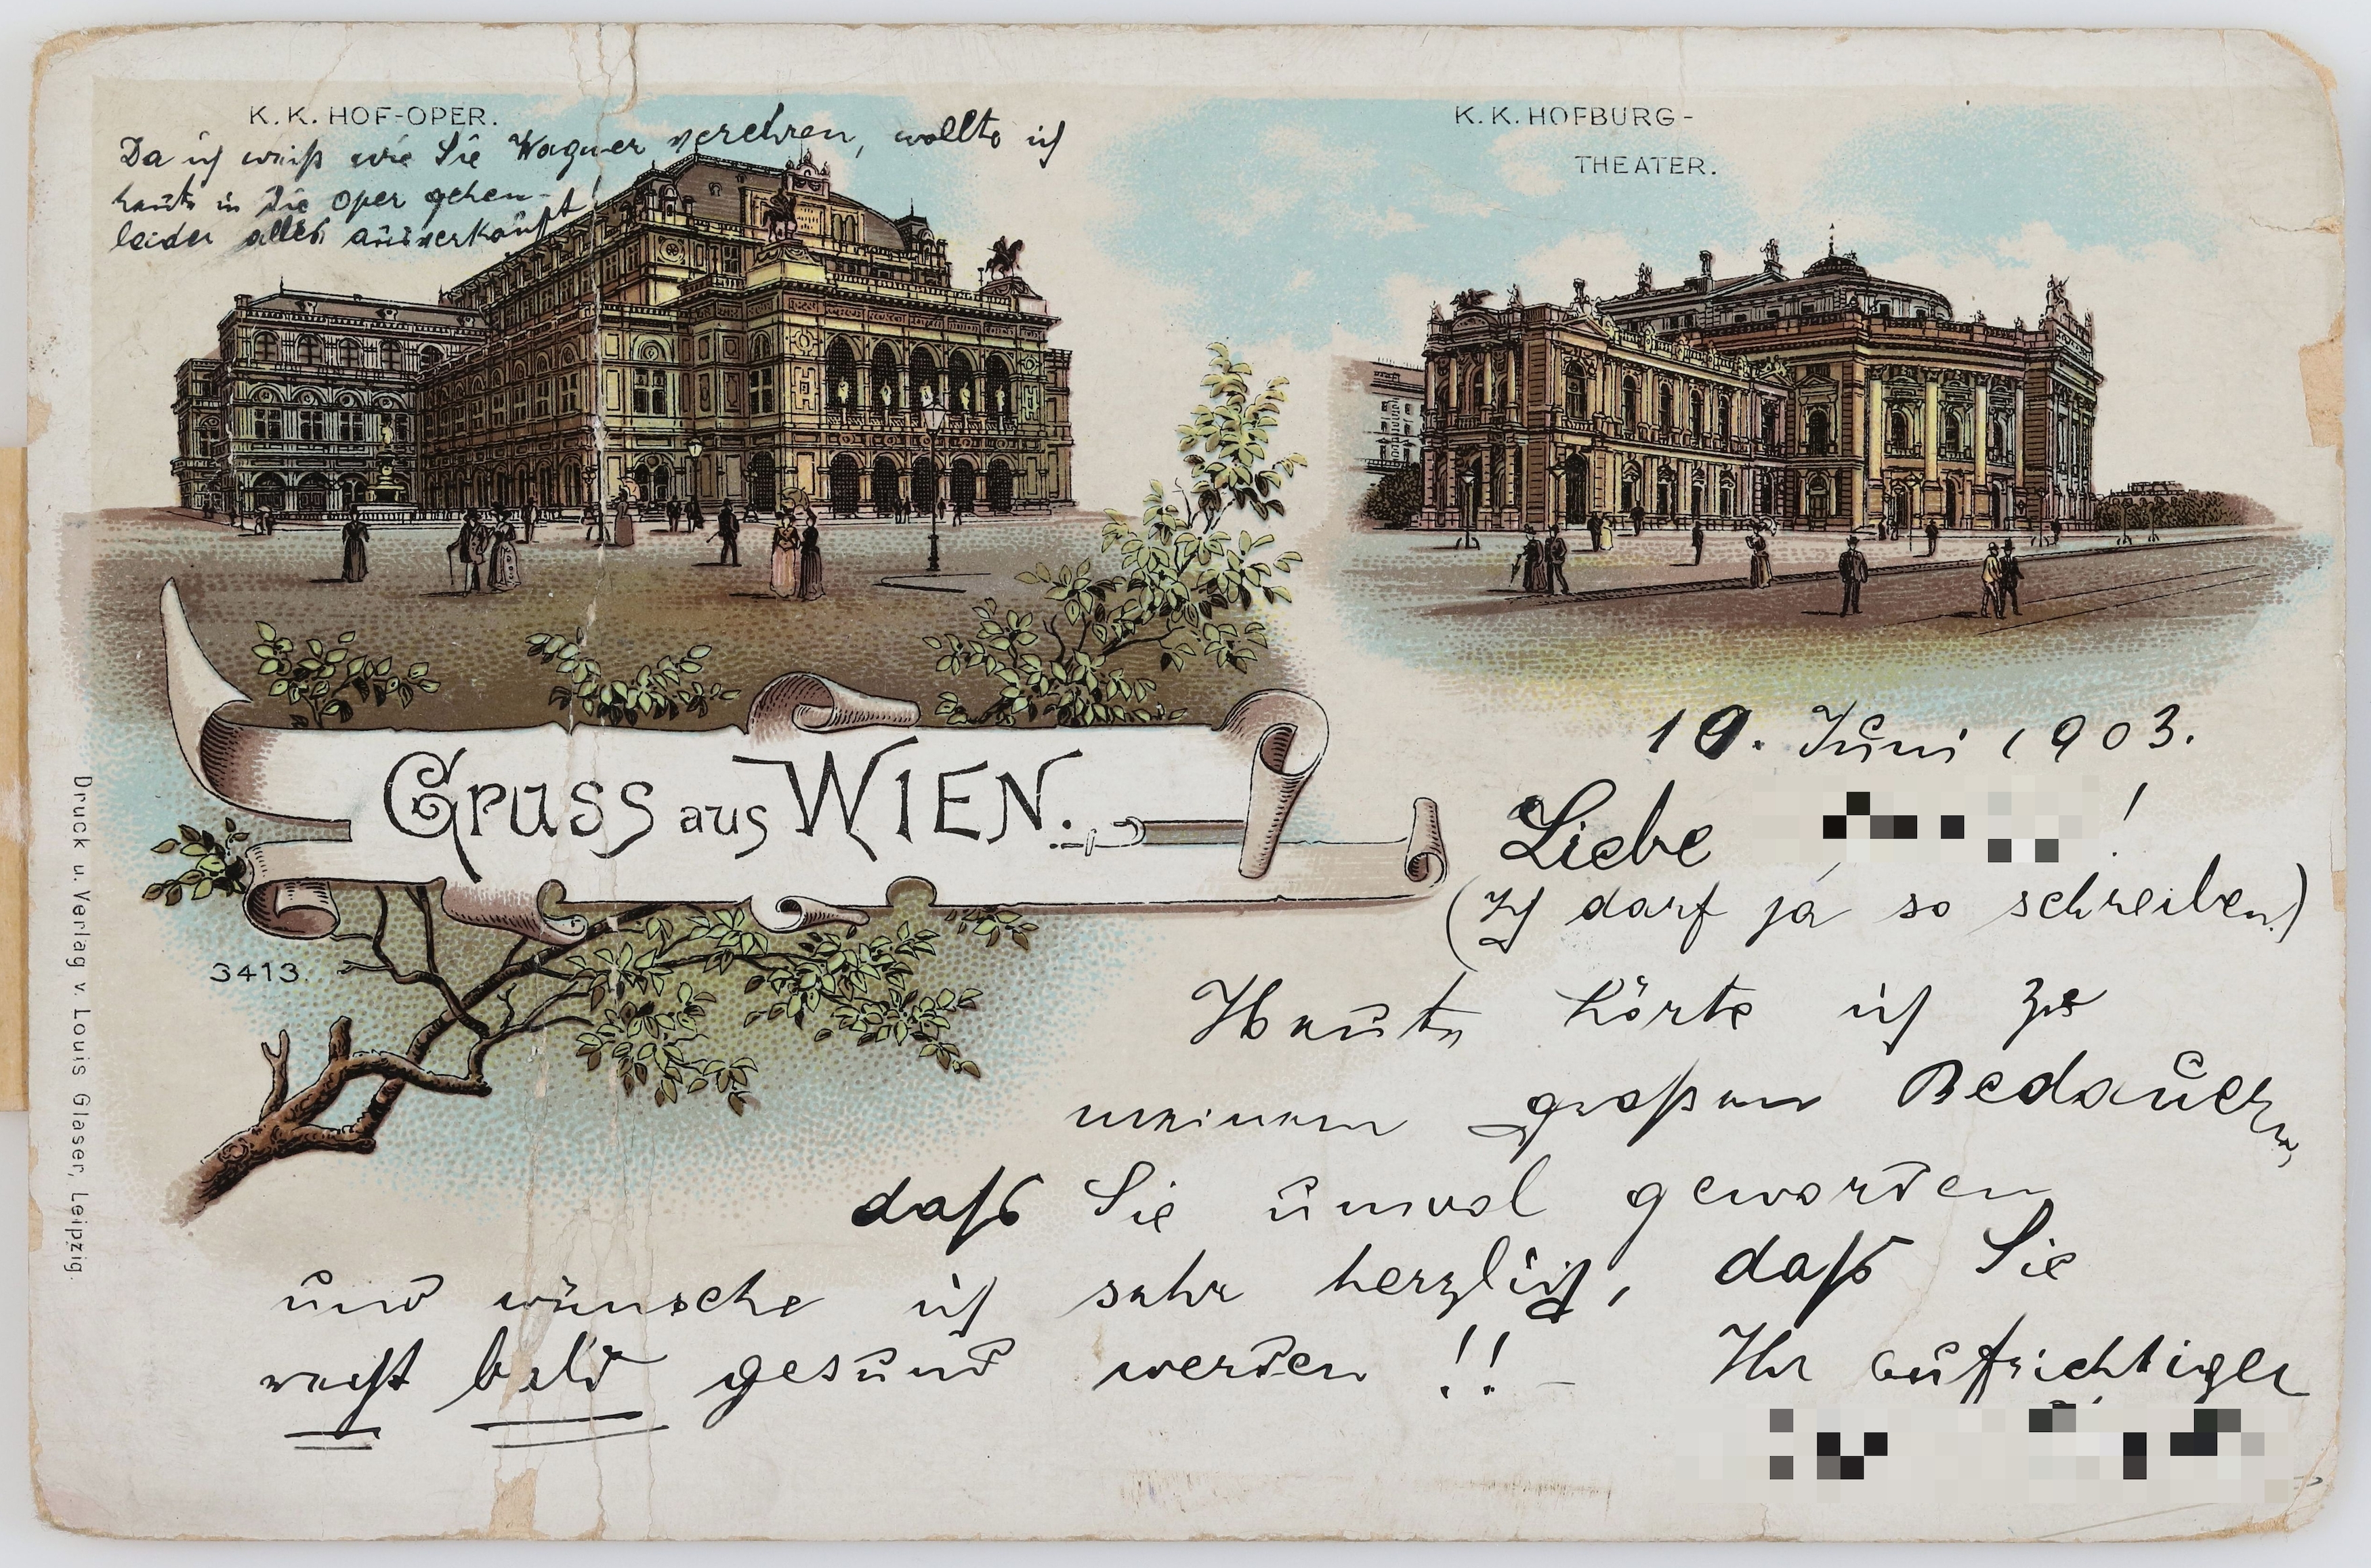 K. K. HOF-OPER.
Da ich weiß wie Sie Wagner verehren, wollte ich
heute in die Oper gehen –
leider alles ausverkauft!
K. K. HOFBURG-
THEATER.
GRUSS aus WIEN.
10. Juni 1903.
Liebe !
(Ich darf ja so schreiben.)
Heute hörte ich zu
meinem großen Bedauern,
daß Sie unwol geworden
und wünsche ich sehr herzlich, daß Sie
recht bald gesund werden!! – Ihr aufrichtiger
3413.
Druck u. Verlag v. Louis Glaser, Leipzig.